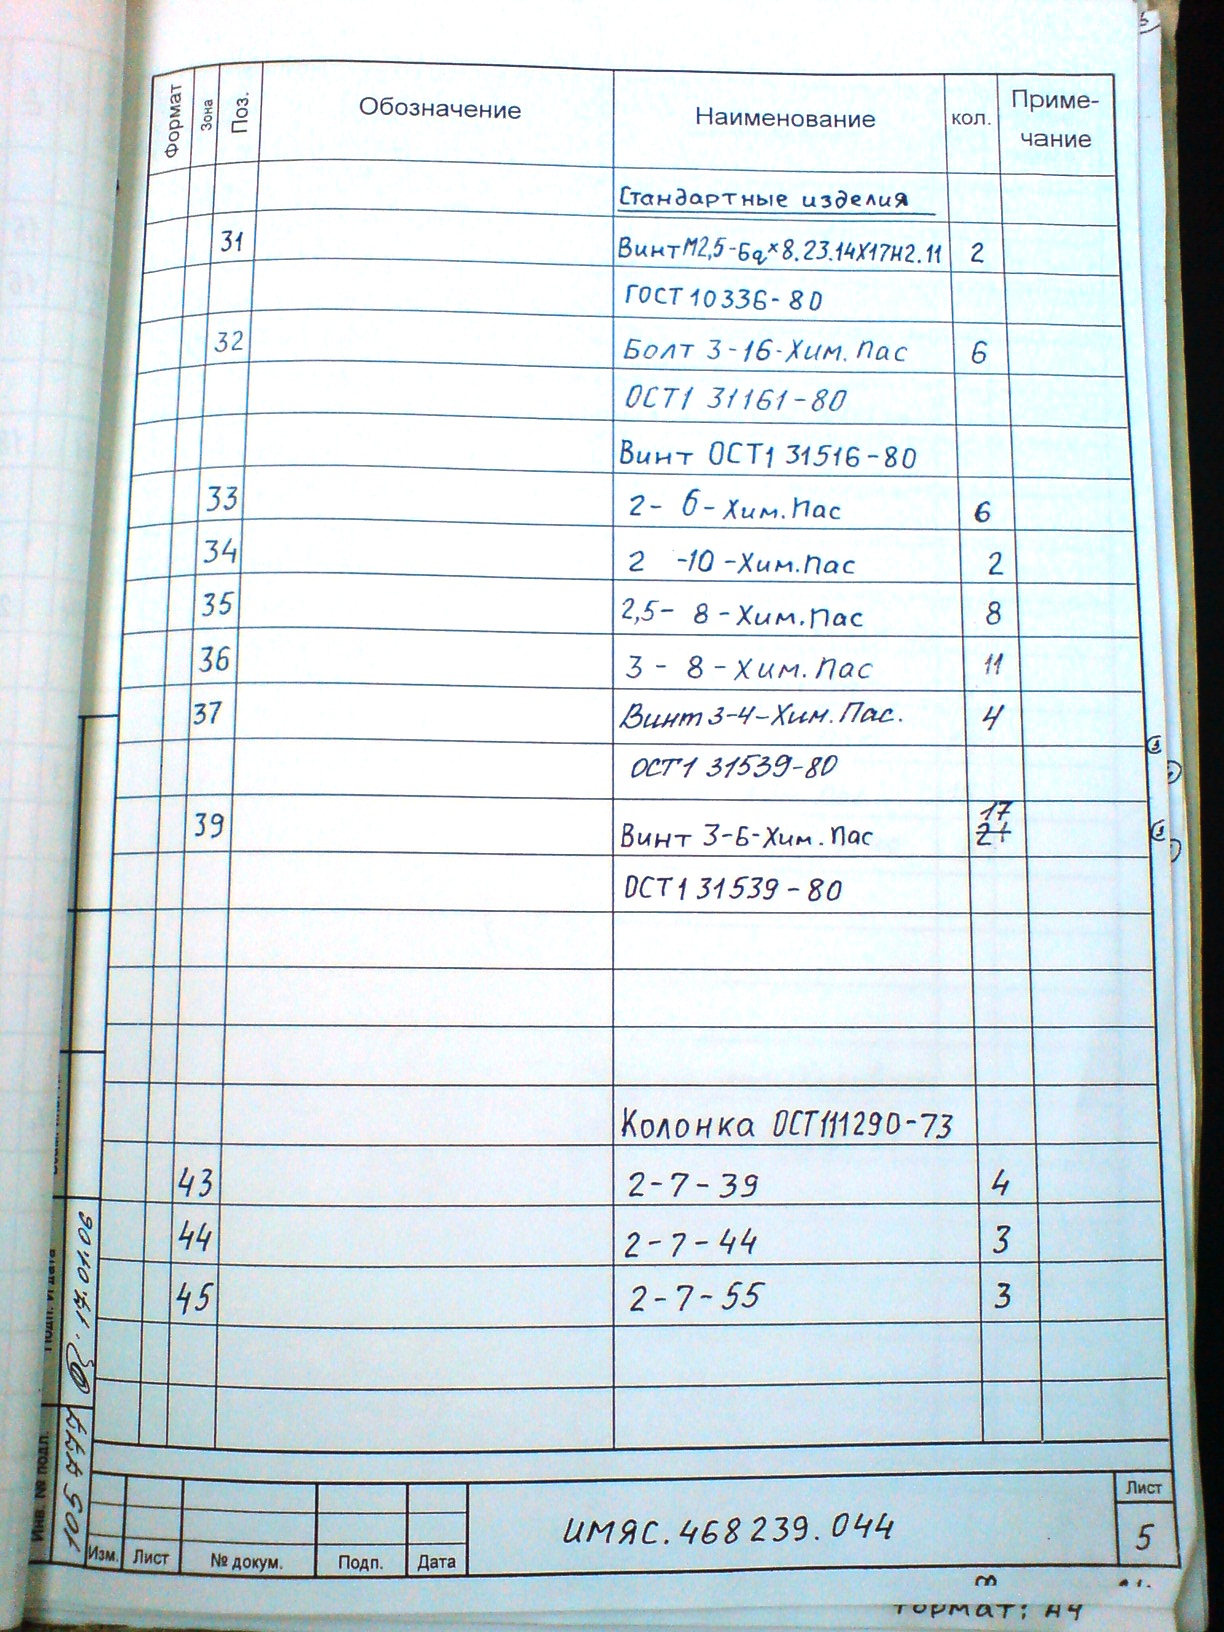 Формат Зона Поз. Обозначение Наименование кол. Приме-
чание
Стандартные изделия
31 Винт М2,5-6q×8.23.14Х17Н2.11 2
ГОСТ 10336-80
32 Болт 3-16-Хим. Пас 6
ОСТ1 31161-80
Винт ОСТ1 31516-80
33 2- 6-Хим.Пас 6
34 2 -10-Хим.Пас 2
35 2,5- 8-Хим.Пас 8
36 3 - 8-Хим.Пас 11
37 Винт 3-4-Хим.Пас. 4
ОСТ1 31539-80
17
39 Винт 3-6-Хим.Пас 21
ОСТ1 31539-80
Колонка ОСТ111290-73
43 2-7-39 4
44 2-7-44 3
45 2-7-55 3
Подп. и дата
Инв. № подл.
Лист
ИМЯС.468239.044
5
Изм. Лист № докум. Подп. Дата
Формат: А4